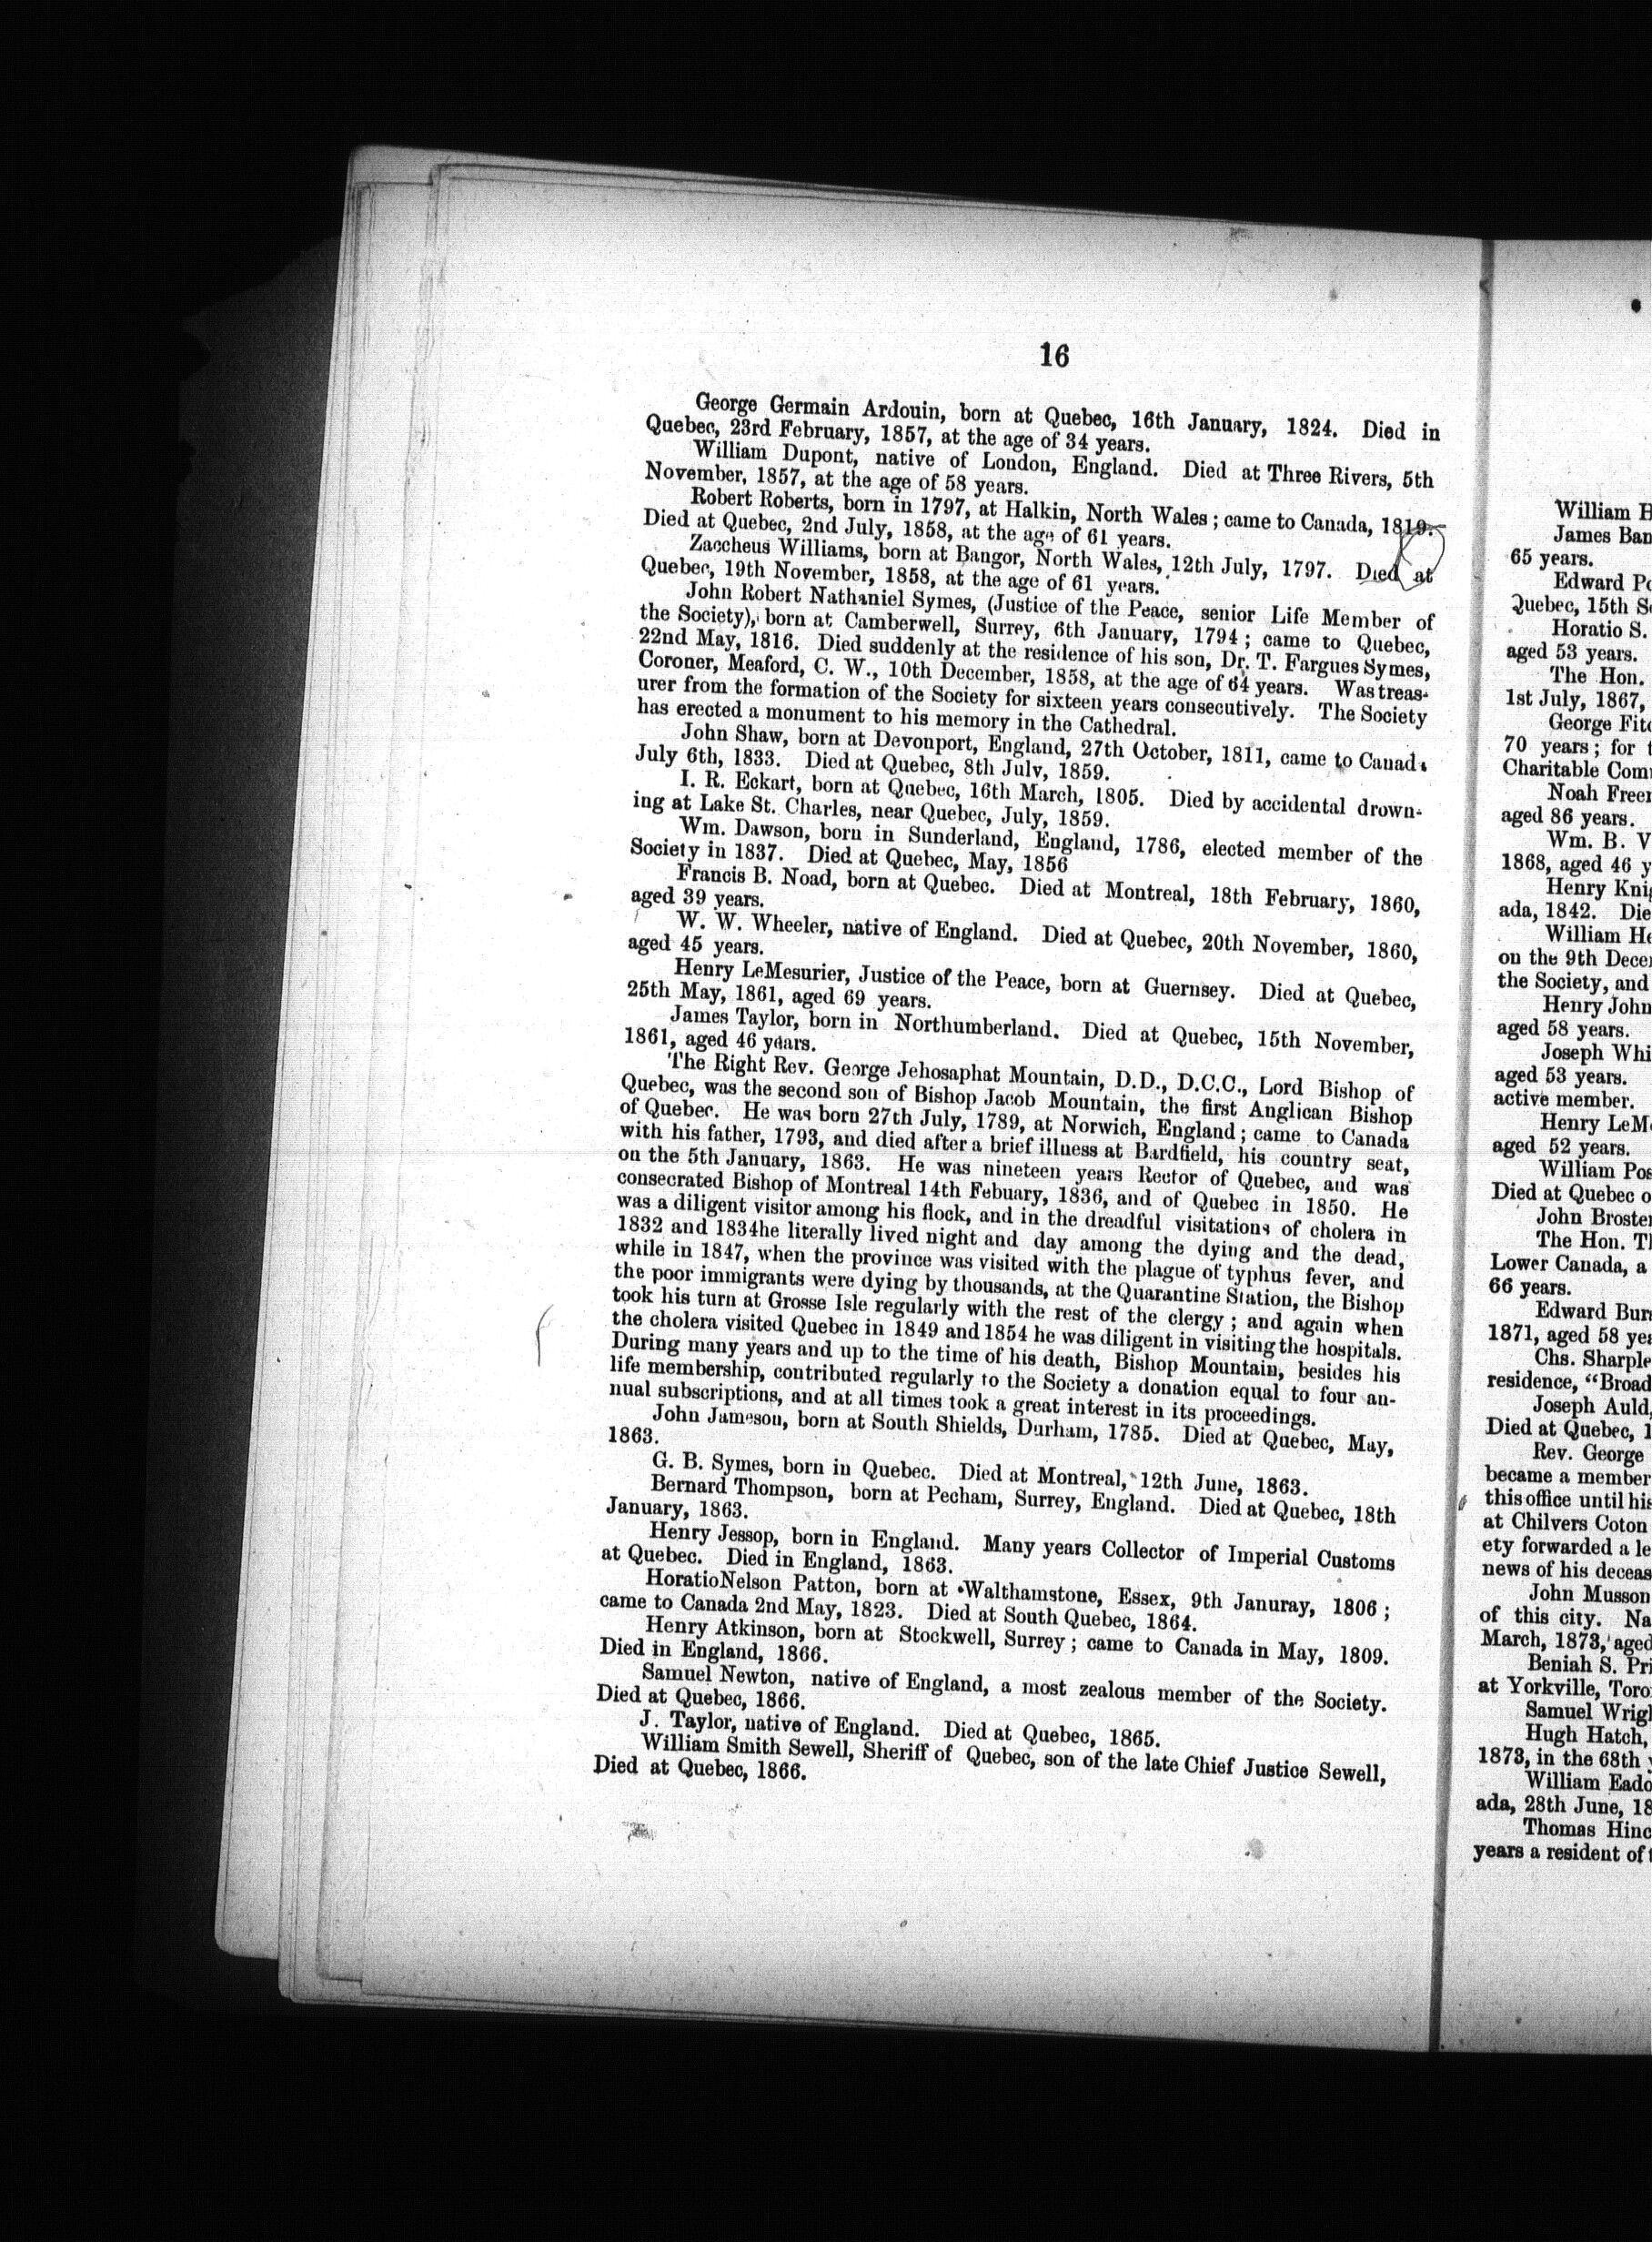 16
George Germain Ardouin, born at Quebec, 16th January, 1824. Died in
Quebec, 23rd February, 1857, at the age of 34 years.
William Dupont, native of London, England. Died at Three Rivers, 5th
November, 1857, at the age of 58 years.
Robert Roberts, born in 1797, at Halkin, North Wales ; came to Canada, 1819.
Died at Quebec, 2nd July, 1858, at the age of 61 years.
Zaccheus Williams, born at Bangor, North Wales, 12th July, 1797. Died at
Quebec, 19th November, 1858, at the age of 61 years.
John Robert Nathaniel Symes, (Justice of the Peace, senior Life Member of
the Society), born at Camberwell, Surrey, 6th January, 1794 ; came to Quebec,
22nd May, 1816. Died suddenly at the residence of his son, Dr. T. Fargues Symes,
Coroner, Meaford, C. W., 10th December, 1858, at the age of 64 years. Was treas-
urer from the formation of the Society for sixteen years consecutively. The Society
has erected a monument to his memory in the Cathedral.
John Shaw, born at Devonport, England, 27th October, 1811, came to Canada
July 6th, 1833. Died at Quebec, 8th July, 1859.
I. R. Eckart, born at Quebec, 16th March, 1805. Died by accidental drown-
ing at Lake St. Charles, near Quebec, July, 1859.
Wm. Dawson, born in Sunderland, England, 1786, elected member of the
Society in 1837. Died at Quebec, May, 1856
Francis B. Noad, born at Quebec. Died at Montreal, 18th February, 1860,
aged 39 years.
W. W. Wheeler, native of England. Died at Quebec, 20th November, 1860,
aged 45 years.
Henry LeMesurier, Justice of the Peace, born at Guernsey. Died at Quebec,
25th May, 1861, aged 69 years.
James Taylor, born in Northumberland. Died at Quebec, 15th November,
1861, aged 46 years.
The Right Rev. George Jehosaphat Mountain, D.D., D.C.C., Lord Bishop of
Quebec, was the second son of Bishop Jacob Mountain, the first Anglican Bishop
of Quebec. He was born 27th July, 1789, at Norwich, England ; came to Canada
with his father, 1793, and died after a brief illness at Bardfield, his country seat,
on the 5th January, 1863. He was nineteen years Rector of Quebec, and was
consecrated Bishop of Montreal 14th Febuary, 1836, and of Quebec in 1850. He
was a diligent visitor among his flock, and in the dreadful visitations of cholera in
1832 and 1834he literally lived night and day among the dying and the dead,
while in 1847, when the province was visited with the plague of typhus fever, and
the poor immigrants were dying by thousands, at the Quarantine Station, the Bishop
took his turn at Grosse Isle regularly with the rest of the clergy ; and again when
the cholera visited Quebec in 1849 and 1854 he was diligent in visiting the hospitals.
During many years and up to the time of his death, Bishop Mountain, besides his
life membership, contributed regularly to the Society a donation equal to four an-
nual subscriptions, and at all times took a great interest in its proceedings.
John Jameson, born at South Shields, Durham, 1785. Died at Quebec, May,
1863.
G. B. Symes, born in Quebec. Died at Montreal, 12th June, 1863.
Bernard Thompson, born at Pecham, Surrey, England. Died at Quebec, 18th
January, 1863.
Henry Jessop, born in England. Many years Collector of Imperial Customs
at Quebec. Died in England, 1863.
HoratioNelson Patton, born at Walthamstone, Essex, 9th Januray, 1806 ;
came to Canada 2nd May, 1823. Died at South Quebec, 1864.
Henry Atkinson, born at Stockwell, Surrey ; came to Canada in May, 1809.
Died in England, 1866.
Samuel Newton, native of England, a most zealous member of the Society.
Died at Quebec, 1866.
J. Taylor, native of England. Died at Quebec, 1865.
William Smith Sewell, Sheriff of Quebec, son of the late Chief Justice Sewell,
Died at Quebec, 1866.
William
James
65 years.
Edward
Quebec, 15th
Horatio S.
aged 53 years.
The Hon.
1st July, 1867,
George
70 years ; for
Charitable
Noah
aged 86 years.
Wm. B.
1868, aged 46
Henry
ada, 1842.
William
on the 9th
the Society, and
Henry John
aged 58 years.
Joseph
aged 53 years.
active member.
Henry
aged 52 years.
William
Died at Quebec
John
The Hon.
Lower Canada, a
66 years.
Edward
1871, aged 58
Chs.
residence, "Broad
Joseph Auld,
Died at Quebec,
Rev. George
became a member
this office until
at Chilvers Coton
ety forwarded a
news of his
John Musson
of this city.
March, 1873, aged
Beniah S.
at Yorkville,
Samuel
Hugh Hatch,
1873, in the 68th
William
ada, 28th June,
Thomas
years a resident of